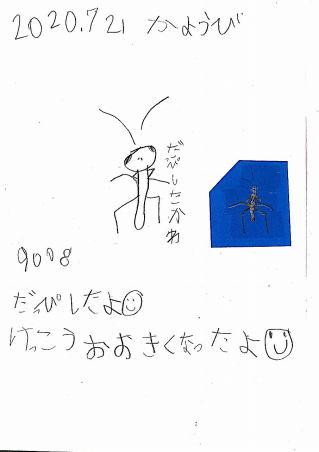 2020.7 21 かようび
だっぴしたかわ
9008
だっぴしたよ
けっこうおおきくなったよ